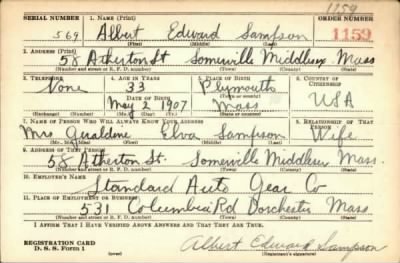 1159
SERIAL NUMBER 1. NAME (Print) ORDER NUMBER
569 Albert Edward Sampson 1159
(First) (Middle) (Last)
2. ADDRESS (Print)
58 Atherton St Somerville Middlesex Mass
(Number and street or R. F. D. number) (Town) (County) (State)
3. TELEPHONE 4. AGE IN YEARS 5. PLACE OF BIRTH 6. COUNTRY OF CITIZENSHIP
None 33 Plymouth
DATE OF BIRTH (Town or county)
May 2 1907 Mass USA
(Exchange) (Number) (Mo.) (Day) (Yr.) (State or country)
7. NAME OF PERSON WHO WILL ALWAYS KNOW YOUR ADDRESS 8. RELATIONSHIP OF THAT PERSON
Mrs Geraldine Elva Sampson Wife
(Mr., Mrs., Miss) (First) (Middle) (Last)
9. ADDRESS OF THAT PERSON
58 Atherton St. Somerville Middlesex Mass.
(Number and street or R. F. D. number) (Town) (County) (State)
10. EMPLOYER'S NAME
Standard Auto Gear Co
11. PLACE OF EMPLOYMENT OR BUSINESS
531 Columbia Rd Dorchester Mass
(Number and street or R. F. D. number) (Town) (County) (State)
I AFFIRM THAT I HAVE VERIFIED ABOVE ANSWERS AND THAT THEY ARE TRUE.
REGISTRATION CARD
D. S. S. Form 1
Albert Edward Sampson
(Registrant's signature)